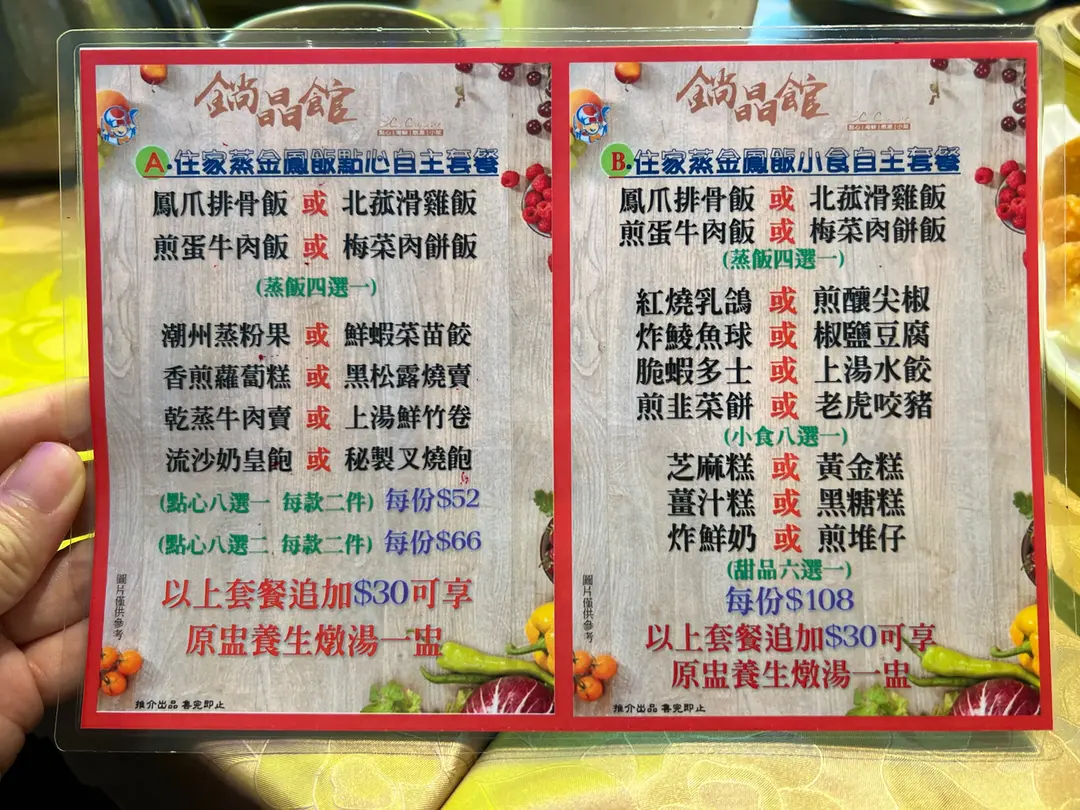 鎬晶館
點心|海鮮|燉湯|小菜
A.住家蒸金鳳飯點心自主套餐
鳳爪排骨飯 或 北菰滑雞飯
煎蛋牛肉飯 或 梅菜肉餅飯
(蒸飯四選一)
潮州蒸粉果 或 鮮蝦菜苗餃
香煎蘿蔔糕 或 黑松露燒賣
乾蒸牛肉賣 或 上湯鮮竹卷
流沙奶皇飽 或 秘製叉燒飽
(點心八選一 每款二件) 每份$52
(點心八選二 每款二件) 每份$66
以上套餐追加$30可享
原盅養生燉湯一盅
圖片僅供參考
推介出品 售完即止
鎬晶館
點心|海鮮|燉湯|小菜
B.住家蒸金鳳飯小食自主套餐
鳳爪排骨飯 或 北菰滑雞飯
煎蛋牛肉飯 或 梅菜肉餅飯
(蒸飯四選一)
紅燒乳鴿 或 煎釀尖椒
炸鯪魚球 或 椒鹽豆腐
脆蝦多士 或 上湯水餃
煎韭菜餅 或 老虎咬豬
(小食八選一)
芝麻糕 或 黃金糕
薑汁糕 或 黑糖糕
炸鮮奶 或 煎堆仔
(甜品六選一)
每份$108
以上套餐追加$30可享
原盅養生燉湯一盅
圖片僅供參考
推介出品 售完即止